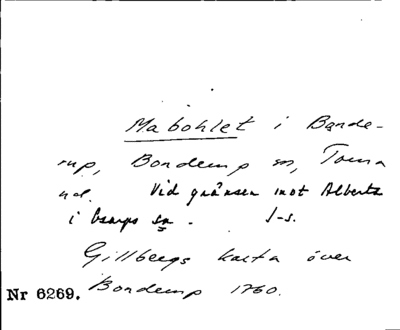 Mabohlet i Bonde-
rup, Bonderup sn, Torna
hd. Vid gränsen mot Alberta
i Esarps sn. J-s.
Gillbergs karta över
Nr 6269. Bonderup 1760.